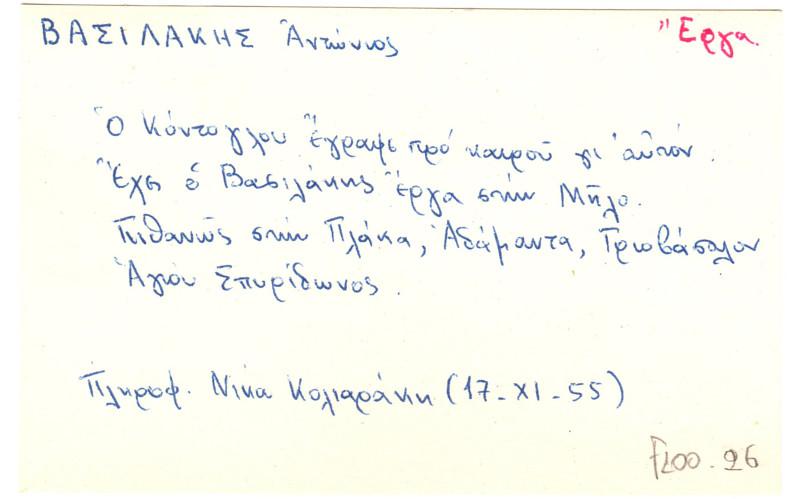 ΒΑΣΙΛΑΚΗΣ Ἀντώνιος
Ἔργα.
Ὁ Κόντογλου ἔγραψε πρό καιροῦ γι' αὐτόν.
Ἔχει ὁ Βασιλάκης ἔργα στήν Μῆλο.
Πιθανῶς στήν Πλάκα, Ἀδάμαντα, Τριοβάσαλον
Ἁγίου Σπυρίδωνος.
Πληροφ. Νίκα Κολιαράκη (17-XI-55)
F200.26